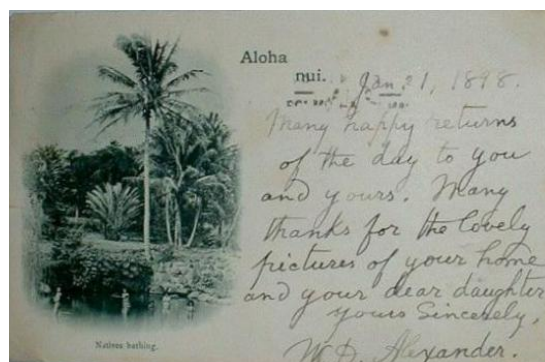 Aloha
nui.
Jan. 21, 1898.
Many happy returns
of the day to you
and yours. Many
thanks for the lovely
pictures of your home
and your dear daughter
yours Sincerely,
W. D. Alexander.
Natives bathing.